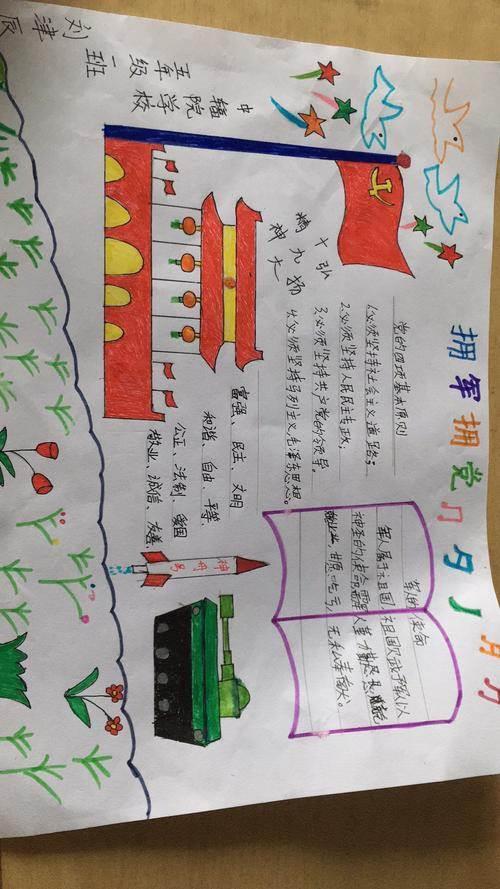 拥军拥党
中辐院学校
五年级一班
刘津辰
弘扬
十九大
精神
党的四项基本原则
1.必须坚持社会主义道路;
2.必须坚持人民民主专政,
3.必须坚持共产党的领导.
4.必须坚持马列主义毛泽东思想。
富强、民主、文明
和谐、自由、平等
公正、法制、爱国
敬业、诚信、友善.
神舟 号
使命
军人属于祖国,祖国赋予军人以
神圣的使命,需要军人
甘愿吃亏,无私奉献。